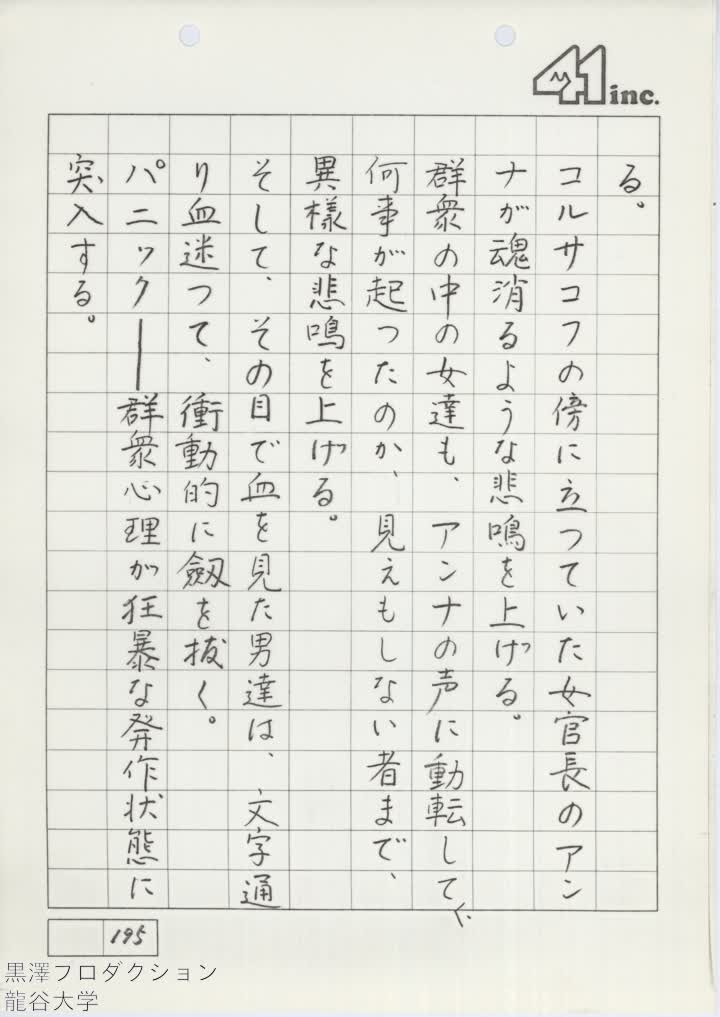 41 inc.
る。
コルサコフの傍に立つていた女官長のアン
ナが魂消るような悲鳴を上げる。
群衆の中の女達も、アンナの声に動転して、
何事が起つたのか、見えもしない者まで、
異様な悲鳴を上げる。
そして、その目で血を見た男達は、文字通
り血迷つて、衝動的に劔を抜く。
パニック──群衆心理が狂暴な発作状態に
突入する。
195
黒澤プロダクション
龍谷大学